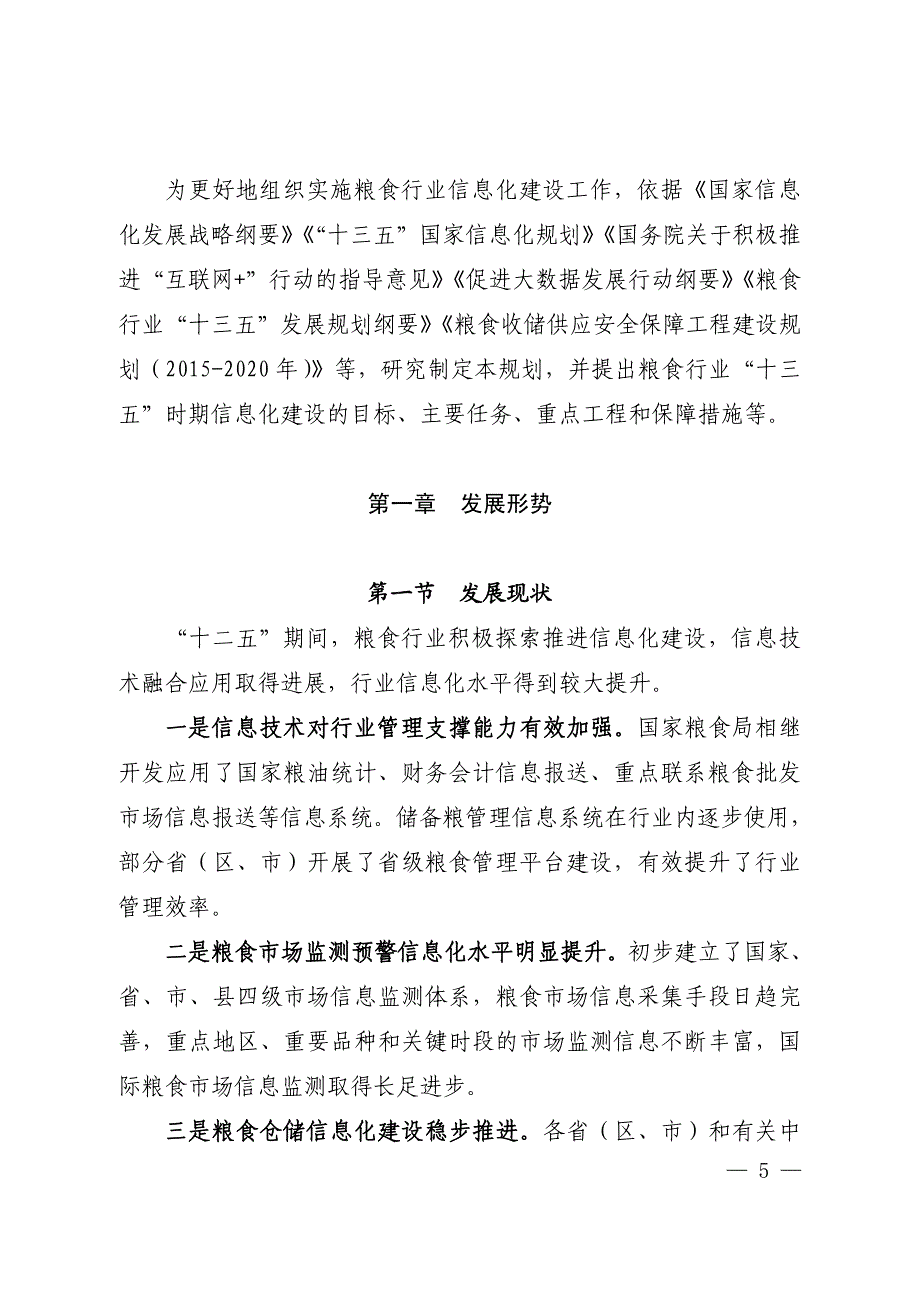 为更好地组织实施粮食行业信息化建设工作，依据《国家信息
化发展战略纲要》《“十三五”国家信息化规划》《国务院关于积极推
进“互联网+”行动的指导意见》《促进大数据发展行动纲要》《粮食
行业“十三五”发展规划纲要》《粮食收储供应安全保障工程建设规
划（2015-2020 年）》等，研究制定本规划，并提出粮食行业“十三
五”时期信息化建设的目标、主要任务、重点工程和保障措施等。
第一章　发展形势
第一节　发展现状
“十二五”期间，粮食行业积极探索推进信息化建设，信息技
术融合应用取得进展，行业信息化水平得到较大提升。
一是信息技术对行业管理支撑能力有效加强。国家粮食局相继
开发应用了国家粮油统计、财务会计信息报送、重点联系粮食批发
市场信息报送等信息系统。储备粮管理信息系统在行业内逐步使用，
部分省（区、市）开展了省级粮食管理平台建设，有效提升了行业
管理效率。
二是粮食市场监测预警信息化水平明显提升。初步建立了国家、
省、市、县四级市场信息监测体系，粮食市场信息采集手段日趋完
善，重点地区、重要品种和关键时段的市场监测信息不断丰富，国
际粮食市场信息监测取得长足进步。
三是粮食仓储信息化建设稳步推进。各省（区、市）和有关中
— 5 —